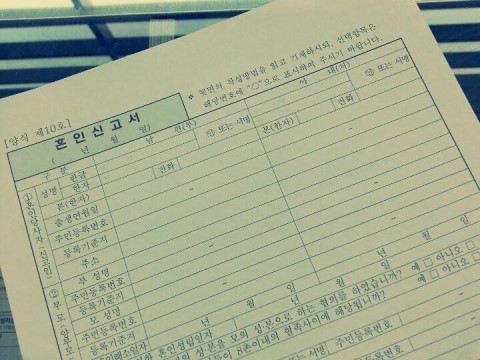 ※ 뒷면의 작성방법을 읽고 기재하시되, 선택항목은
해당번호에 "○"으로 표시하여 주시기 바랍니다.
[양식 제10호]
혼 인 신 고 서
( 년 월 일)
구 분
남 편(부)
아 내(처)
성명
한글
㊞ 또는 서명
㊞ 또는 서명
한자
전화
본(한자)
전화
본(한자)
출생연월일
①혼인당사자(신고인)
주민등록번호
-
-
등록기준지
주소
②부모
부 성명
주민등록번호
-
-
등록기준지
모 성명
주민등록번호
-
-
등록기준지
년 월 일
년 월 일
성·본을 모의 성·본으로 하는 협의를 하였습니까? 예 □ 아니오 □
8촌이내의 혈족사이에 해당됩니까? 예 □ 아니오 □
㊞ 또는 서명
주민등록번호
-